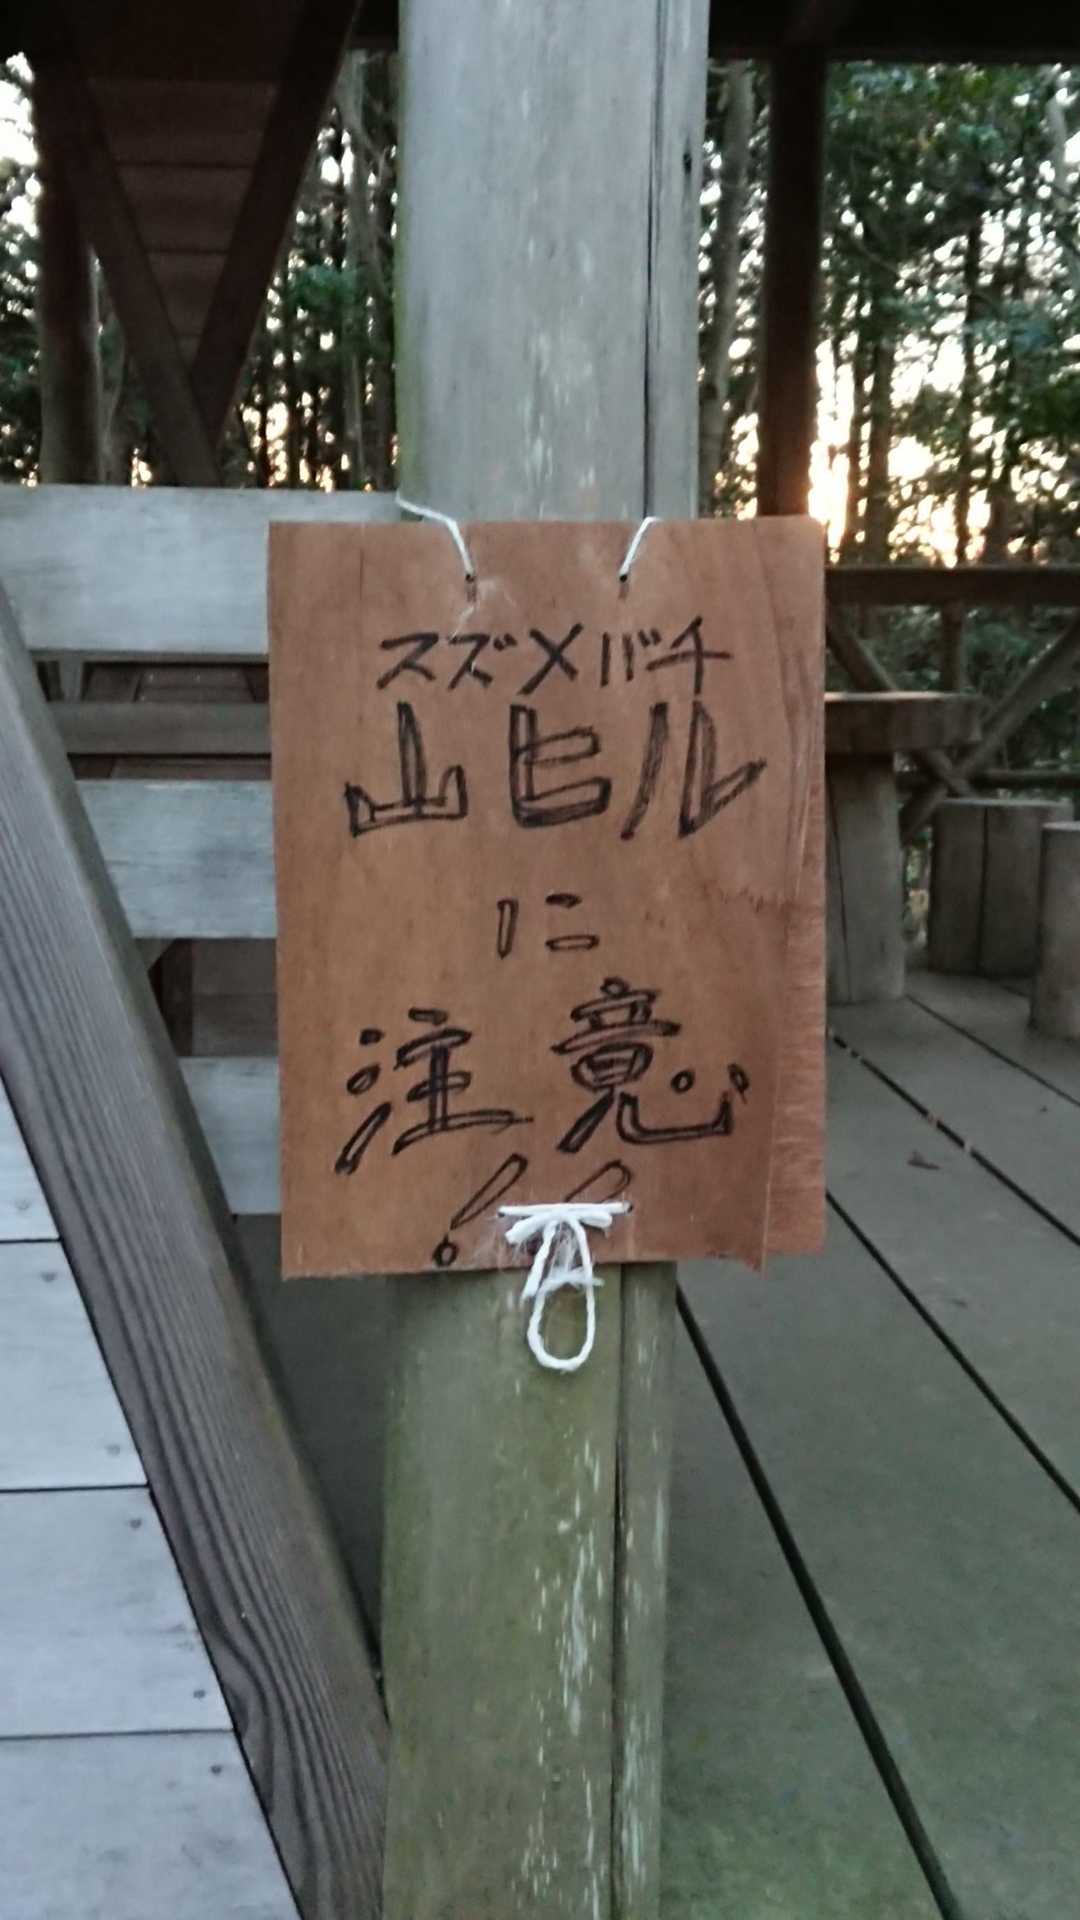 スズメバチ
山ヒル
に
注意
!!